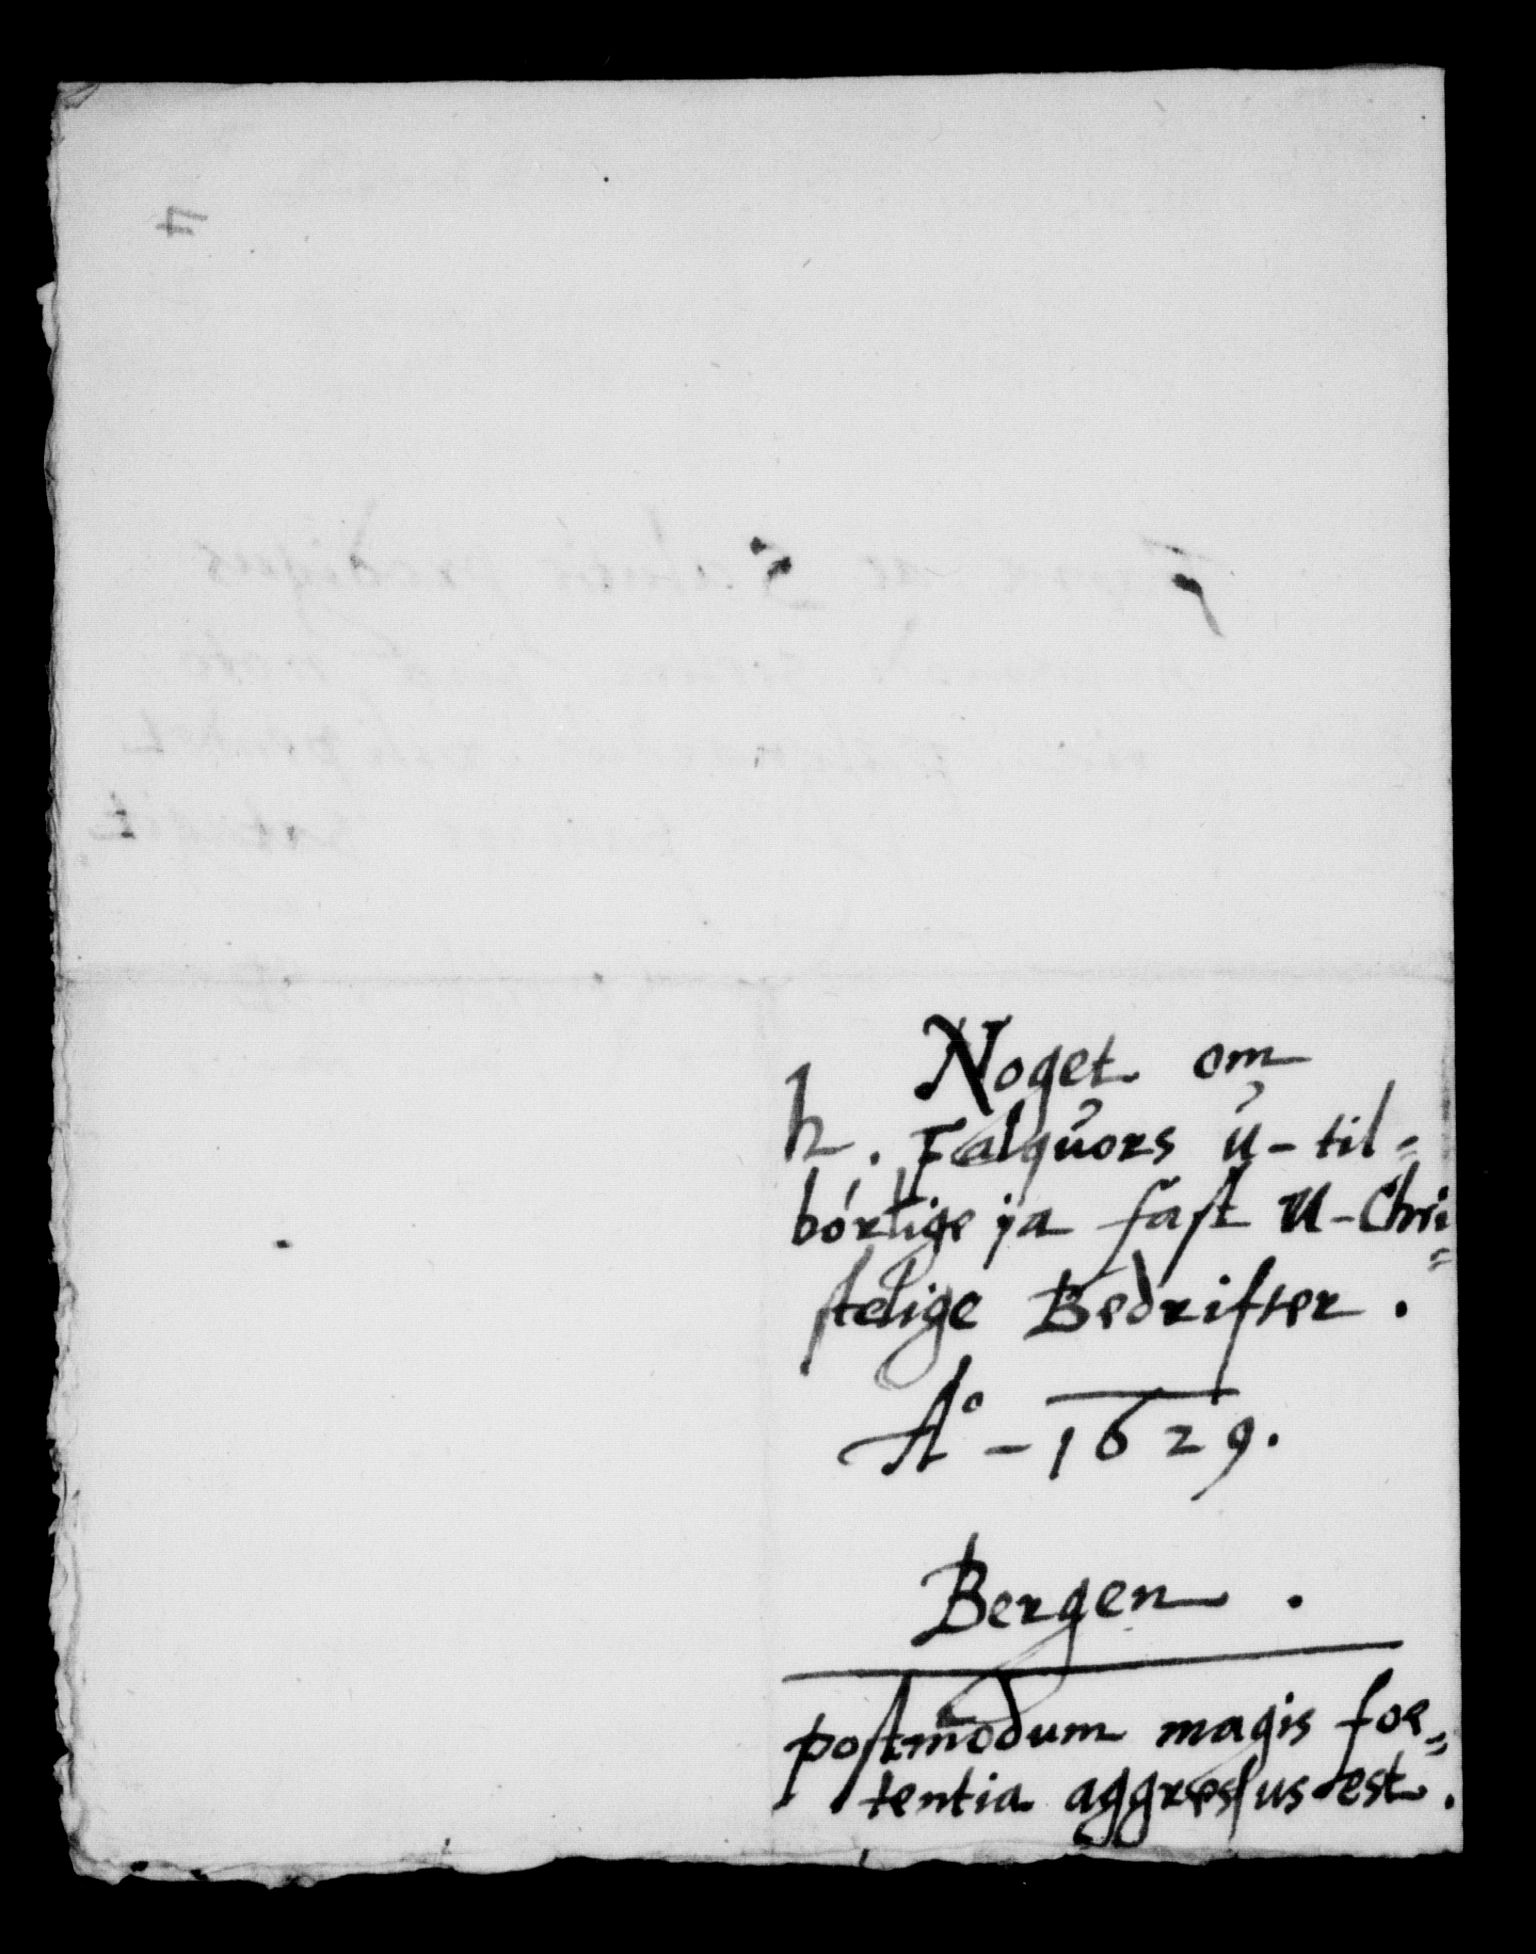 Noget om
h. Falqŭors ŭ-til=
bórlige ja fast U-Chri=
stelige Bedrifter.
Aº - 1629.
Bergen.
postmodum magis foe=
tentia aggressus est.